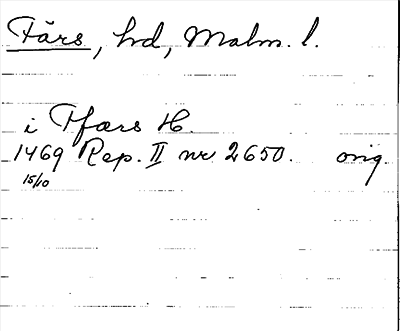 Färs, hd, Malm. l.
i Tfærs H.
1469 Rep. II nr 2650. orig.
15/10